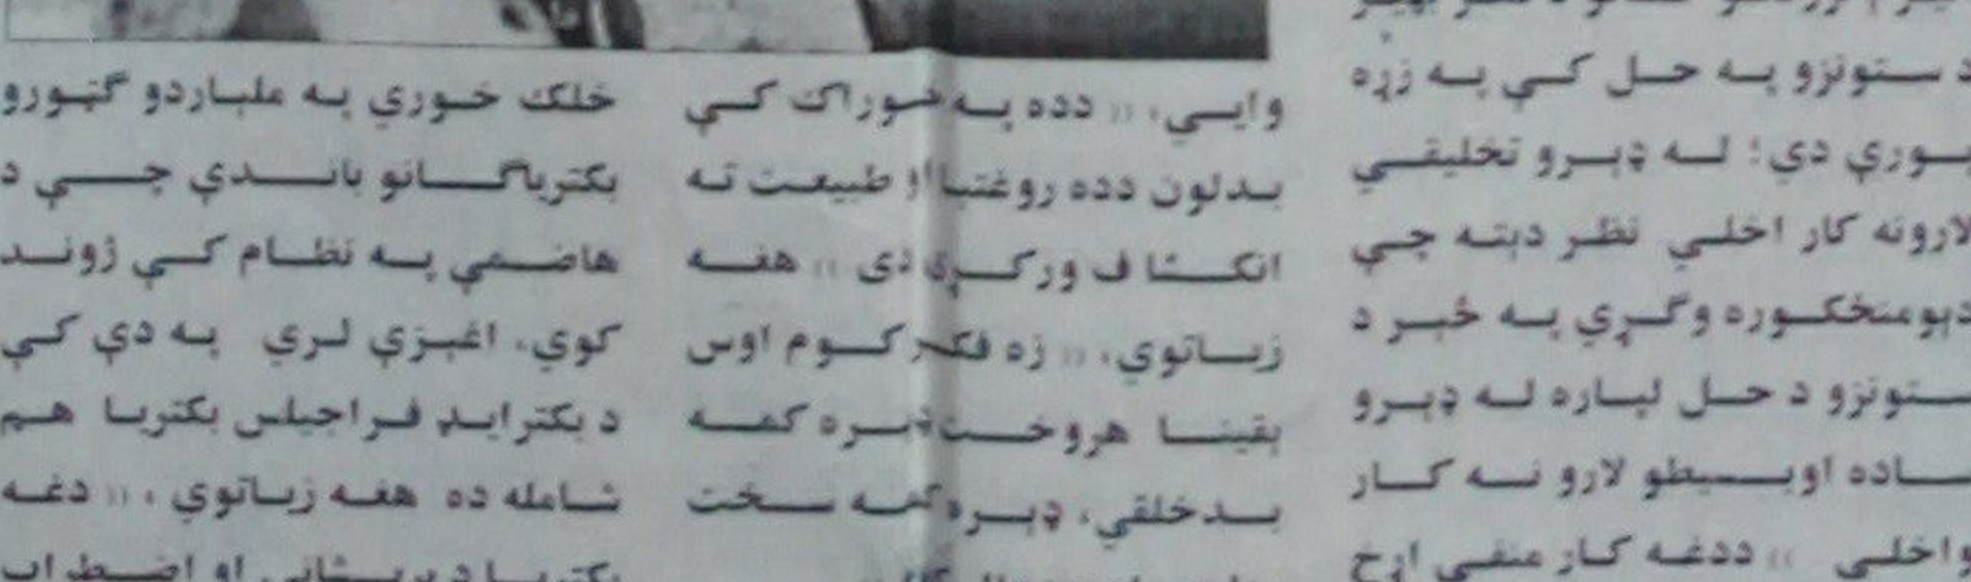 د ستونزو په حل کې په زړه
پورې دي؛ له ډېرو تخليقي
لارونه کار اخلي نظر دېته چې
دېومنځکوره وګړي په څېر د
ستونزو د حل لپاره له ډېرو
ساده اوبسيطو لارو نه کار
واخلي )) ددغه کار منفي اړخ
وايي، (( دده په خوراک کې
بدلون دده روغتيا او طبيعت ته
انکشا ف ورکړی دی )) هغه
زياتوي، (( زه فکر کوم اوس
يقينا هروخت ډېره کمه
بدخلقي، ډېره کمه سخت
خلک خوري په ملياردو ګټورو
بکترياګانو باندې چې د
هاضمې په نظام کې ژوند
کوي، اغېزې لري په دې کې
د بکترايډ فراجيلس بکتريا هم
شامله ده هغه زياتوي ، (( دغه
بکتريا د پريشانۍ او اضطراب